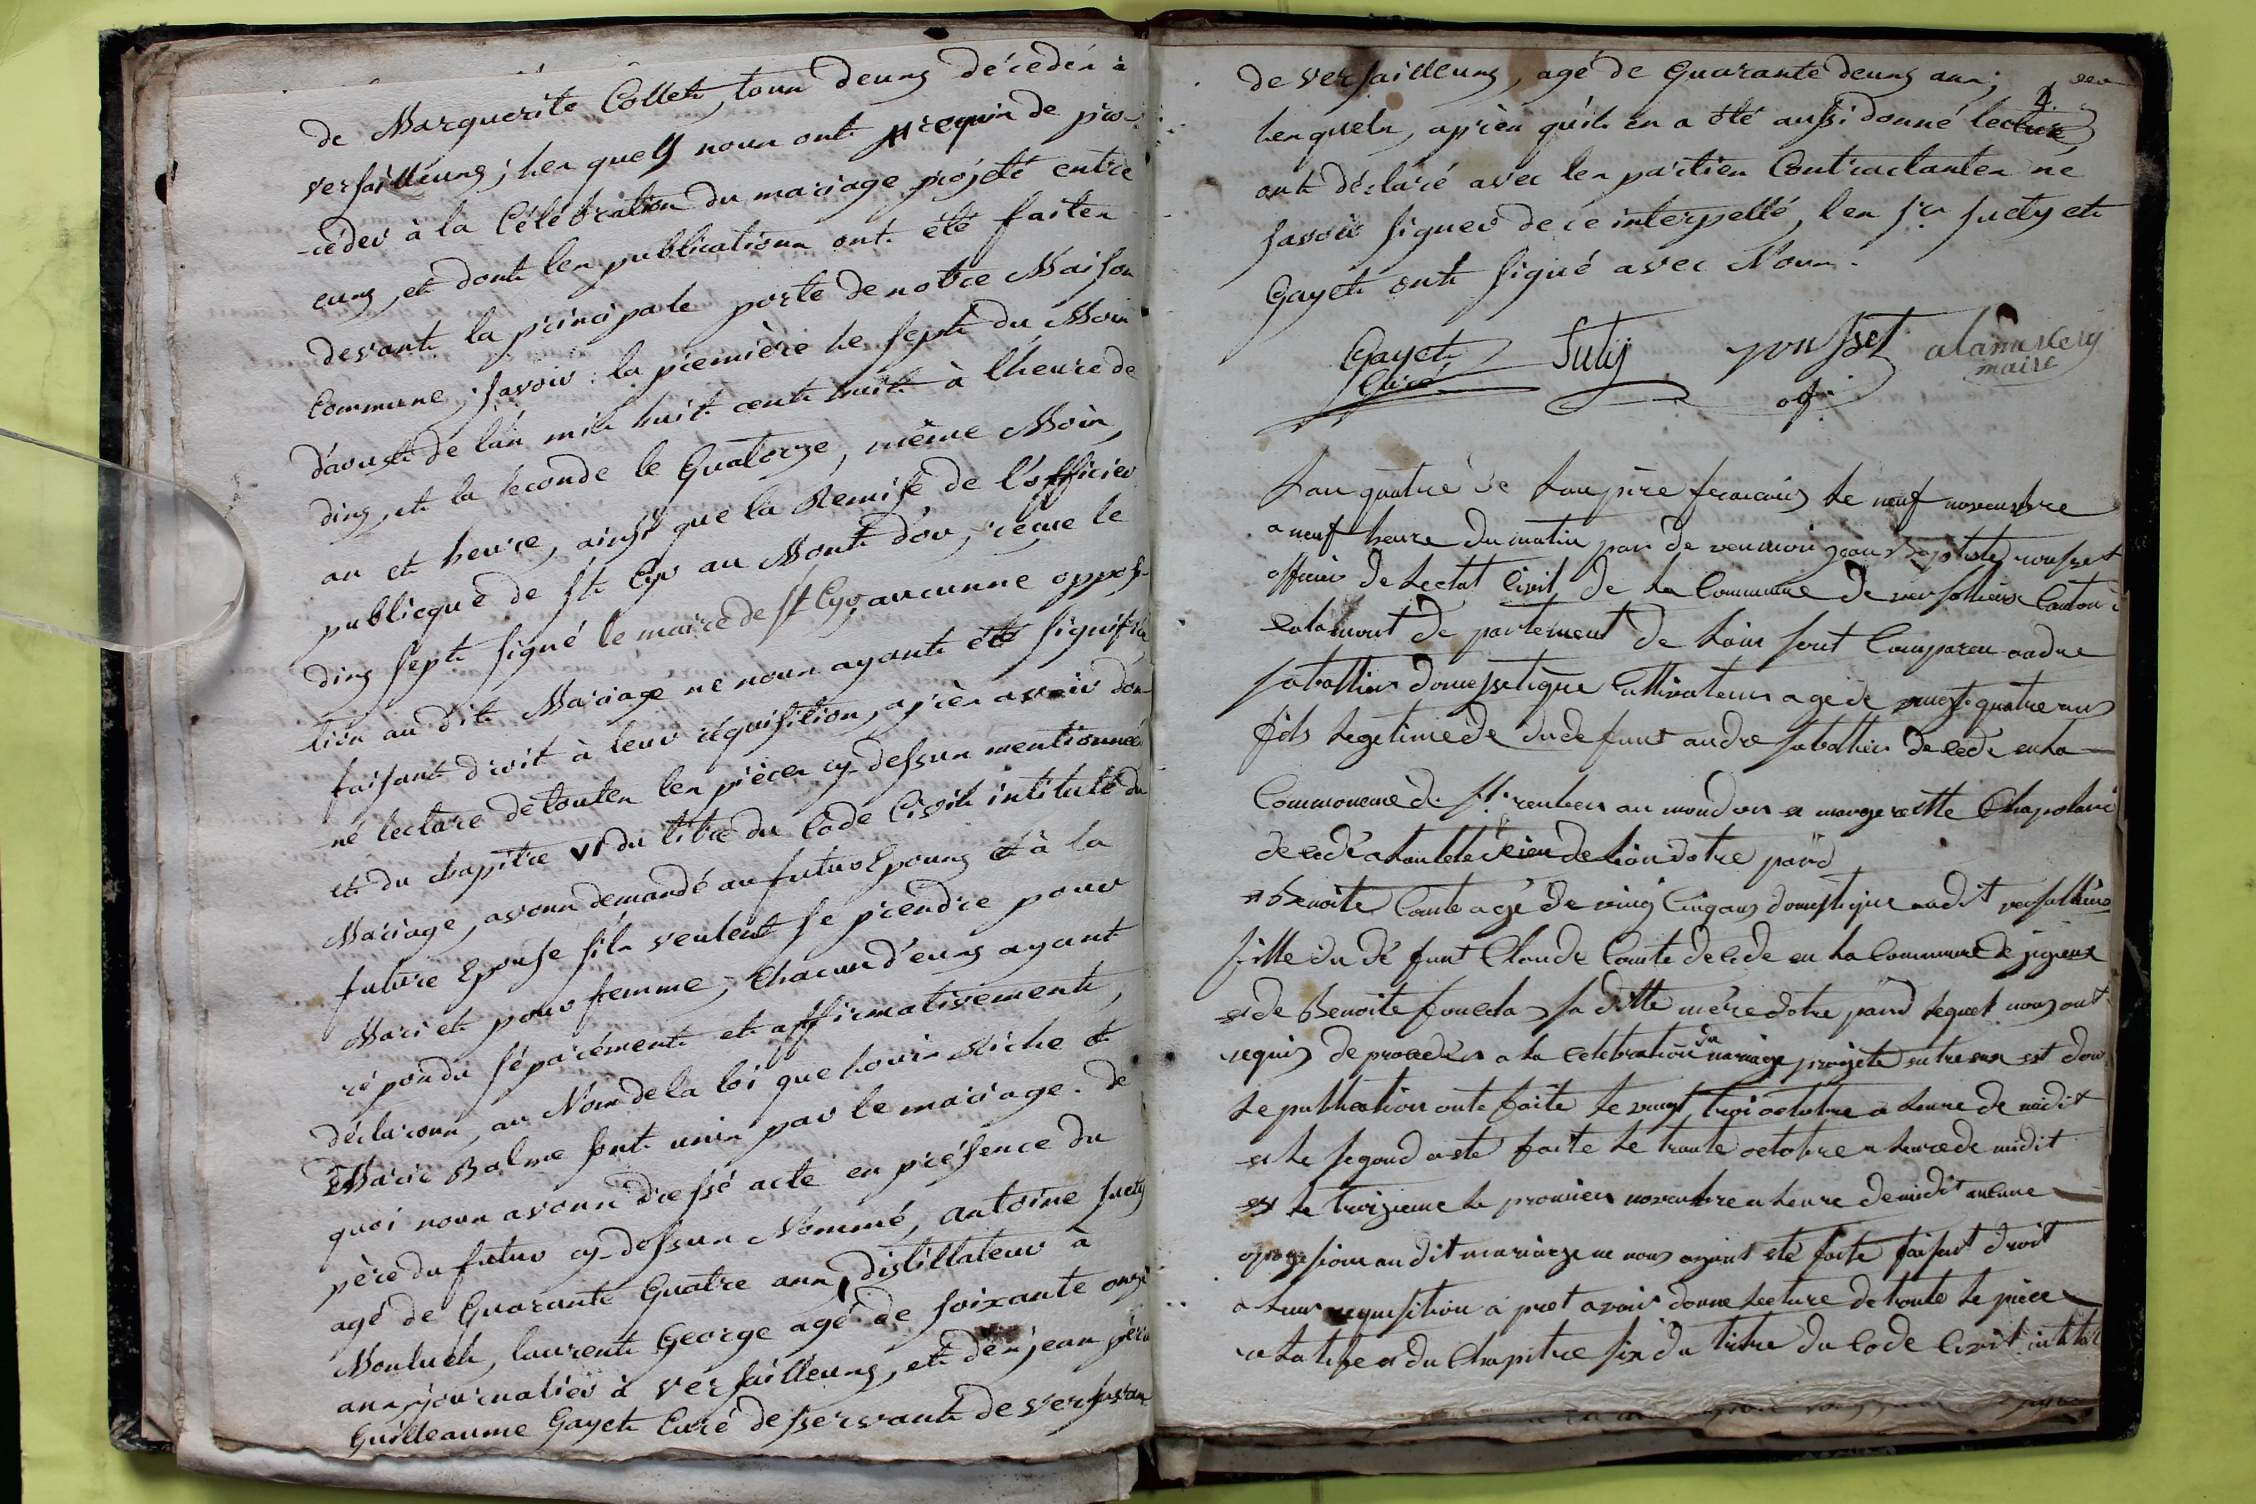 de Marguerite Collet, tous deux décédés à
versailleux; les quels nous ont requis de pro-
-céder à la Célébration du mariage projeté entre
eux, et dont les publications ont été faites
devant la principale porte de notre Maison
Commune, Savoir: la première le sept du Mois
d'aoust de l'an mil huit cent huit à l'heure de
dix, et la seconde le Quatorze, même Mois,
an et heure, ainsi que la Remise de l'officier
publicque de St Cyr au Mont d'or, reçue le
dix sept signé le maire de St Cyr, aucunne opposi-
tion au dit Mariage ne nous ayant été signifiée
faisant droit à leur réquisition, après avoir don-
né lecture de toutes les pièces cy-dessus mentionnées
et du chapitre VI du titre du Code Civil intitulé du
Mariage, avons demandé au futur Epoux et à la
future Epouse s'ils veulent se prendre pour
Mari et pour femme; chacun d'eux ayant
répondu séparément et affirmativement,
déclarons, au Nom de la loi que Louis Riche et
Marie Balme sont unis par le mariage. De
quoi nous avons dressé acte en présence du
père du futur cy-dessus Nommé, antoine Juty
agé de Quarante Quatre ans, distillateur à
Montuel, laurent George agé de soixante onze
ans journalier à versailleux, et de jean pierre
Guilleaume Gayet Curé desservant de
de versailleux, agé de Quarante deux ans;
les quels, après qu'il en a été aussi donné lecture
ont déclaré avec les parties Contractantes ne
savoir signer de ce interpellé, les Srs Juty et
Gayet ont signé avec Nous.
Gayet Juty maire
Curé
Lan quatre de Lanpire francais Le neuf novembre
a neuf heure du matin par de ven moi jean Baptiste
officier de Lectat Civil de La Commune de Canton
de partement de Lain sont Comparu andre
sabattier domestique Cultivateur age de vingt quatre ans
fils Legetime de du de funt andre sabattier de cedé en La
Commune de St au mondor e margerette
de cedé a Lion dotre pard
e Benoite Comte agé de vinq Cinq ans domestique audit
fille du dé funt Claude Comte de Cede en La Commune de
e de Benoite sa ditte mere dotre pard Lequel nous ont
requis de proceder a La Celebration du mariage projete entre eux est don
Le publication onte faite Le vingt troi octobre a heure de midit
e Le segond a ete faite Le trante octobre a heure de midit
e Le troizieme Le promier novembre a heure de midit aucune
oposision au dit mariage ne nous ayant eté faite faisant droit
a Leur requisition a pret avoir donne Lecture de toute Le piece
relative e du Chapitre six du titre du Code Civil intitul